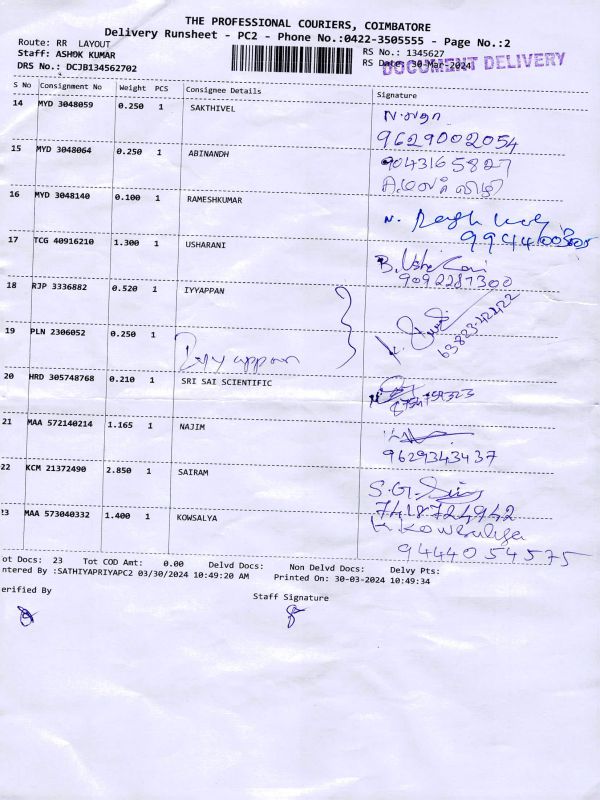 THE PROFESSIONAL COURIERS, COIMBATORE
Delivery Runsheet - PC2 - Phone No.:0422-3505555 - Page No.:2
Route: RR LAYOUT
RS No.: 1345627
Staff: ASHOK KUMAR
RS Date: 30-Mar-2024
DOCUMENT DELIVERY
DRS No.: DCJB134562702
S No Consignment No Weight PCS Consignee Details Signature
14 MYD 3048059 0.250 1 SAKTHIVEL
9629002054
15 MYD 3048064 0.250 1 ABINANDH
9043165827
16 MYD 3048140 0.100 1 RAMESHKUMAR
17 TCG 40916210 1.300 1 USHARANI
B. Usha Rani
9092287300
18 RJP 3336882 0.520 1 IYYAPPAN
19 PLN 2306052 0.250 1
Iyyappan
6382342422
20 HRD 305748768 0.210 1 SRI SAI SCIENTIFIC
21 MAA 572140214 1.165 1 NAJIM
9629343437
22 KCM 21372490 2.850 1 SAIRAM
S.G.
7418724942
23 MAA 573040332 1.400 1 KOWSALYA
K. Kowsalya
9444054575
ot Docs: 23 Tot COD Amt: 0.00 Delvd Docs: Non Delvd Docs: Delvy Pts:
ntered By :SATHIYAPRIYAPC2 03/30/2024 10:49:20 AM Printed On: 30-03-2024 10:49:34
erified By
Staff Signature